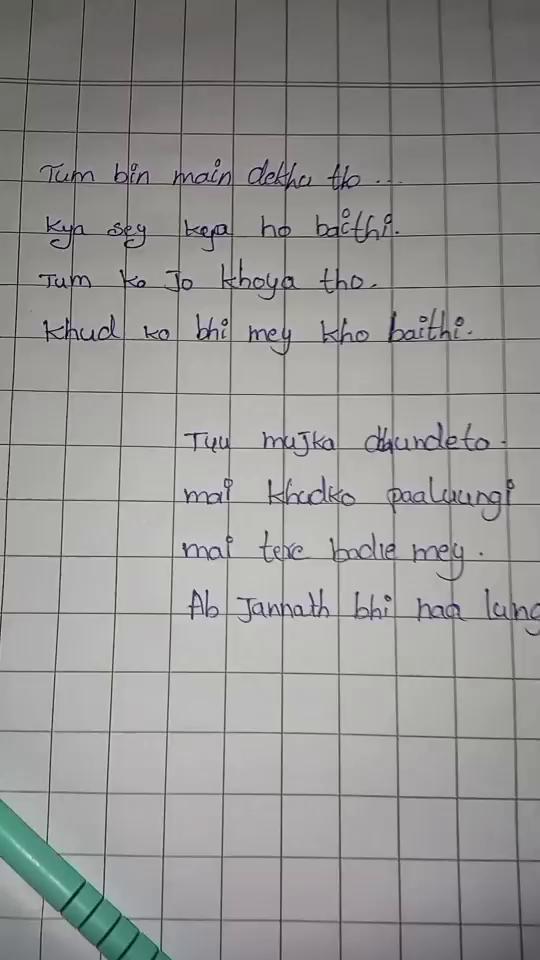 Tum bin main dekha tho...
Kya sey keya ho baithi.
Tum ko Jo khoya tho.
Khud ko bhi mey kho baithi.
Tuu mujka dhundeto.
mai khudko paaluungi
mai tere badle mey.
Ab Jannath bhi naa lung